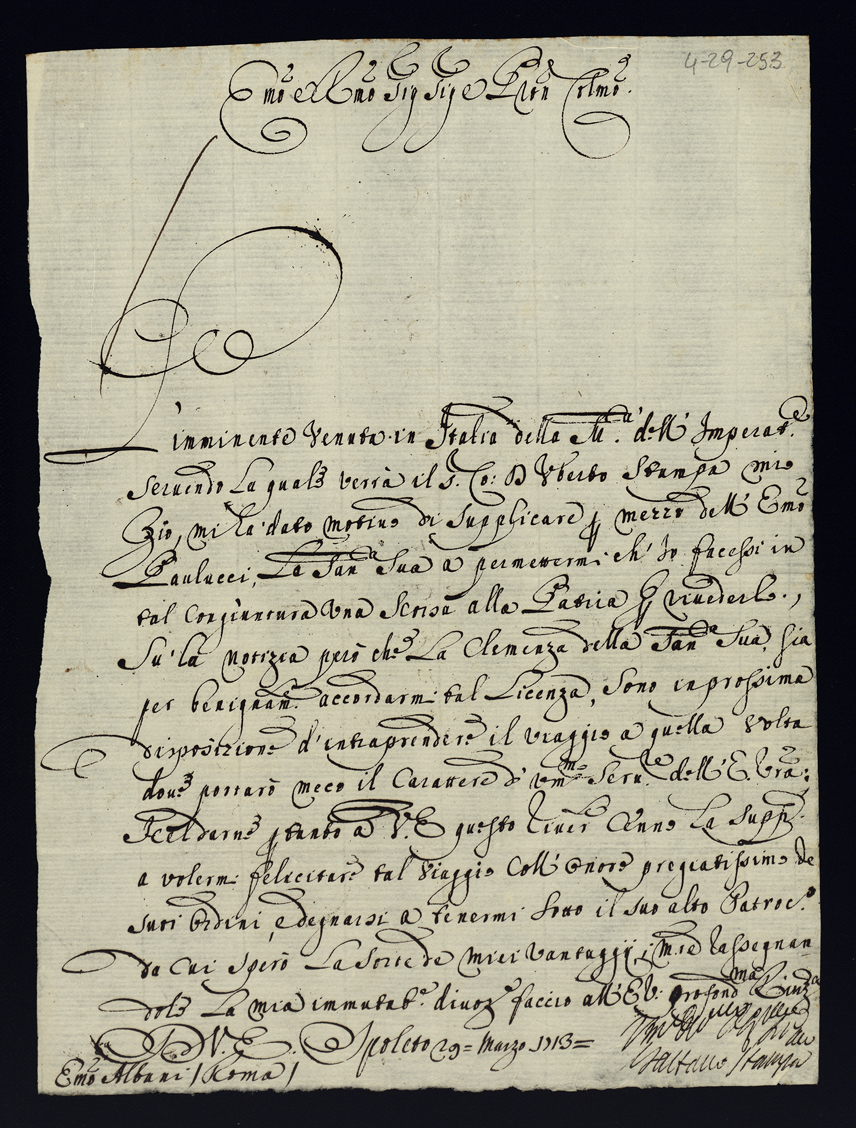 4-29-253
Emo e Rmo Sig Sig e Pron Colmo
L'imminente Venuta in Italia della M.tà dell' Imperat.e
Servendo La quale verrà il S. Co: D Uberto Stampa mio
Zio, mi hà dato motivo di Supplicare p mezzo dell' Emo
Paulucci, La San.a Sua à permettermi ch' Io facessi in
tal Congiuntura Una Scorsa alla Patria p rivederlo.,
Su' la notizia però che La Clemenza della San.a Sua, sia
per benignam. accordarmi tal Licenza, Sono in prossima
disposizione d'intraprendere il viaggio a quella Volta
dove portarò meco il Carattere d' um.mo Serv.re dell' E. Vra;
p tanto a V.E questo river.e Cenno La Supp.
a volermi felicitare tal Viaggio Coll' Onore pregiatissimo de
suoi Ordini, e degnarsi a tenermi sotto il suo alto Patroc.o
da Cui Spero La Sorte de miei Vantaggi; Mentre rassegnan
dole La mia immutab.e divoz.e faccio all' E.V. profond.ma Rive.za
D V. E. Spoleto 29= Marzo 1713=
Gaetano Stampa
Emo Albani / Roma /